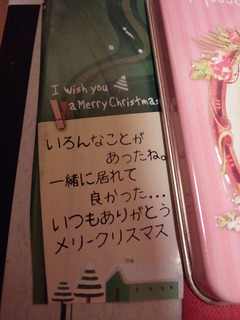 I Wish you
a Merry Christmas
いろんなことが
あったね。
一緒に居れて
良かった...
いつもありがとう
メリークリスマス